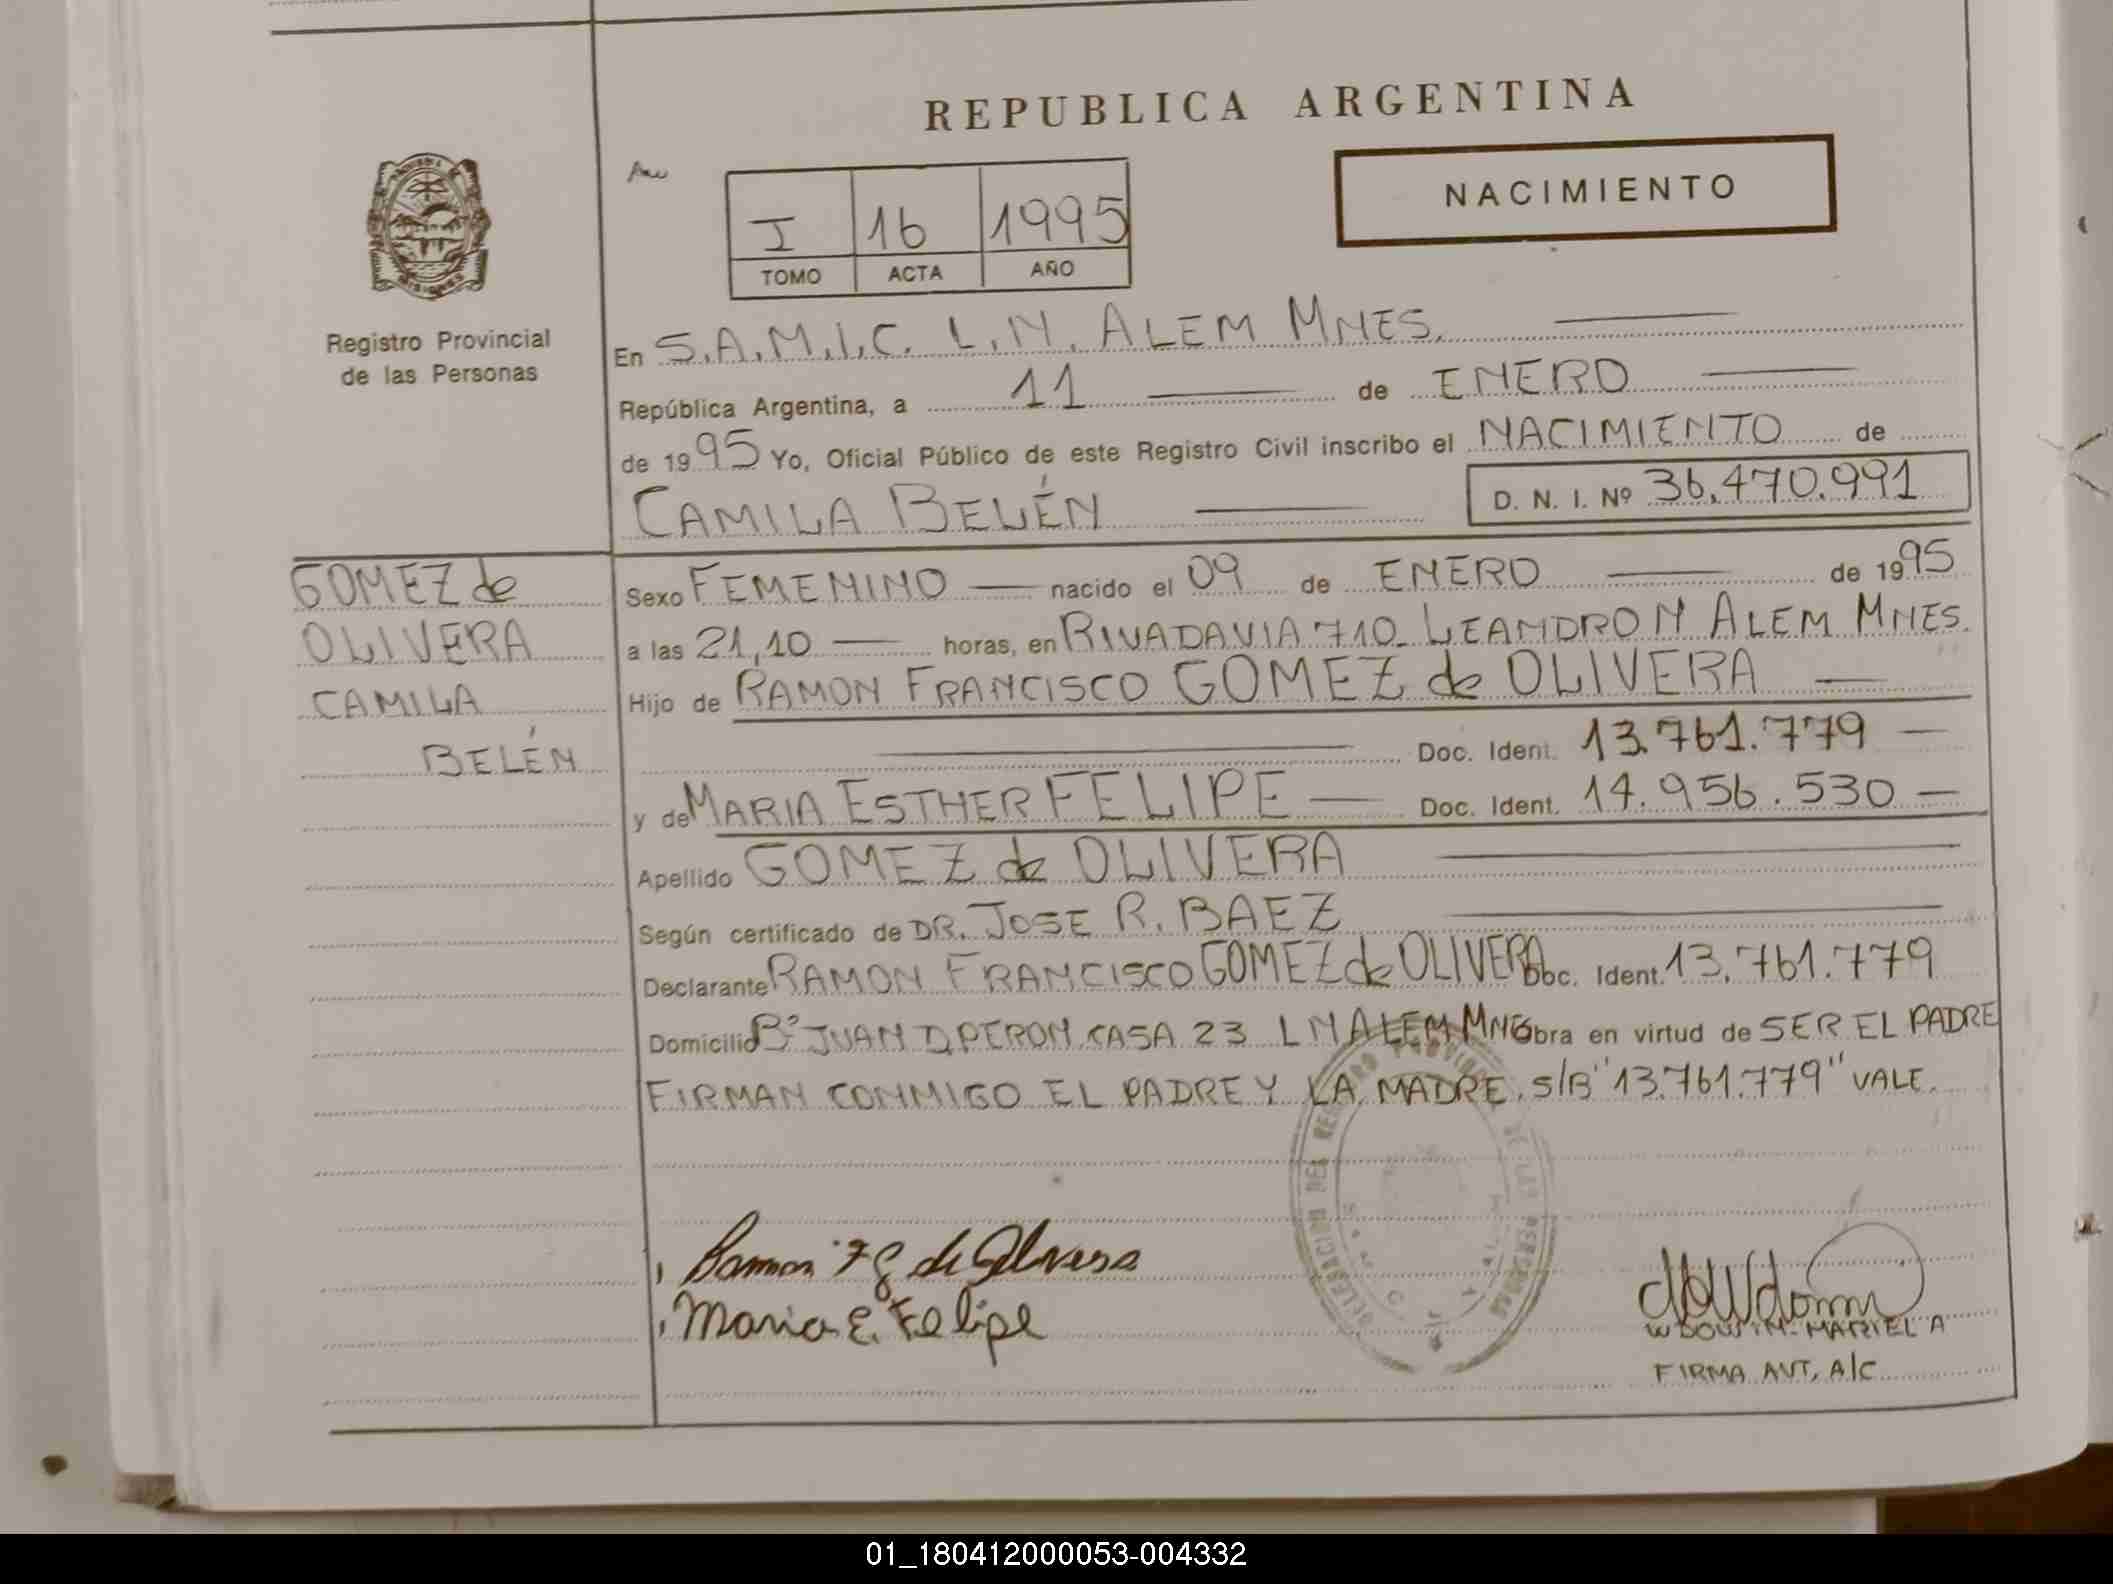 REPUBLICA ARGENTINA
NACIMIENTO
I 16 1995
TOMO ACTA AÑO
Registro Provincial
de las Personas
En S.A.M.I.C. L.N. ALEM MNES.
República Argentina, a 11 de ENERO
de 1995 Yo, Oficial Público de este Registro Civil inscribo el NACIMIENTO de
CAMILA BELÉN D. N. I. Nº 36.470.991
GOMEZ de
OLIVERA
CAMILA
BELÉN
Sexo FEMENINO nacido el 09 de ENERO de 1995
a las 21,10 horas, en RIVADAVIA 710_ LEANDRO N ALEM MNES.
Hijo de RAMON FRANCISCO GOMEZ de OLIVERA
Doc. Ident. 13.761.779
y de MARIA ESTHER FELIPE Doc. Ident. 14.956.530
Apellido GOMEZ de OLIVERA
Según certificado de DR. JOSE R. BAEZ
Declarante RAMON FRANCISCO GOMEZ de OLIVERA Doc. Ident. 13.761.779
Domicilio Bº JUAN D. PERON CASA 23 L N ALEM MNES Obra en virtud de SER EL PADRE
FIRMAN CONMIGO EL PADRE Y LA MADRE. S/B "13.761.779" VALE.
DELEGACION DEL REGISTRO PROVINCIAL DE LAS PERSONAS
Ramon F G de Olivera
Maria E. Felipe
WDOWIN MARIEL A
FIRMA AUT. A/C
01_180412000053-004332